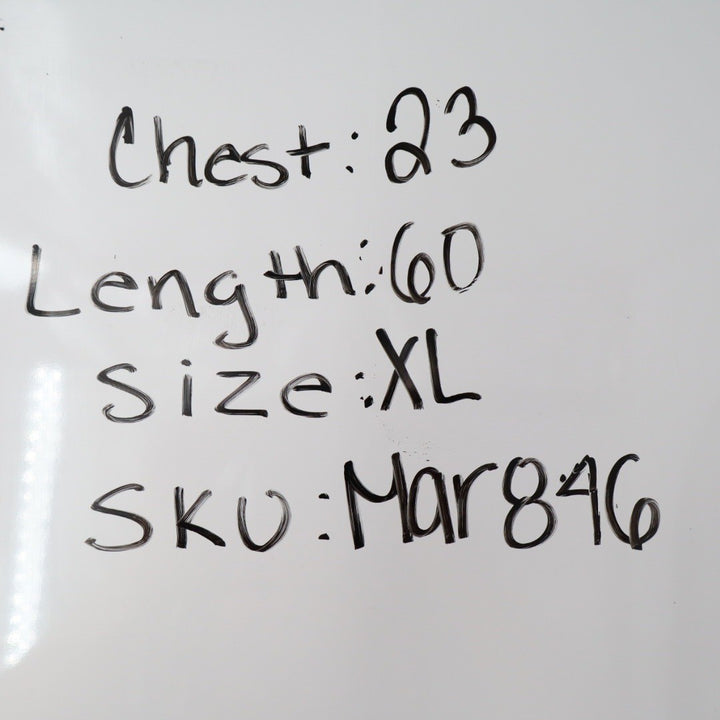 Chest: 23
Length: 60
Size: XL
SKU: Mar846